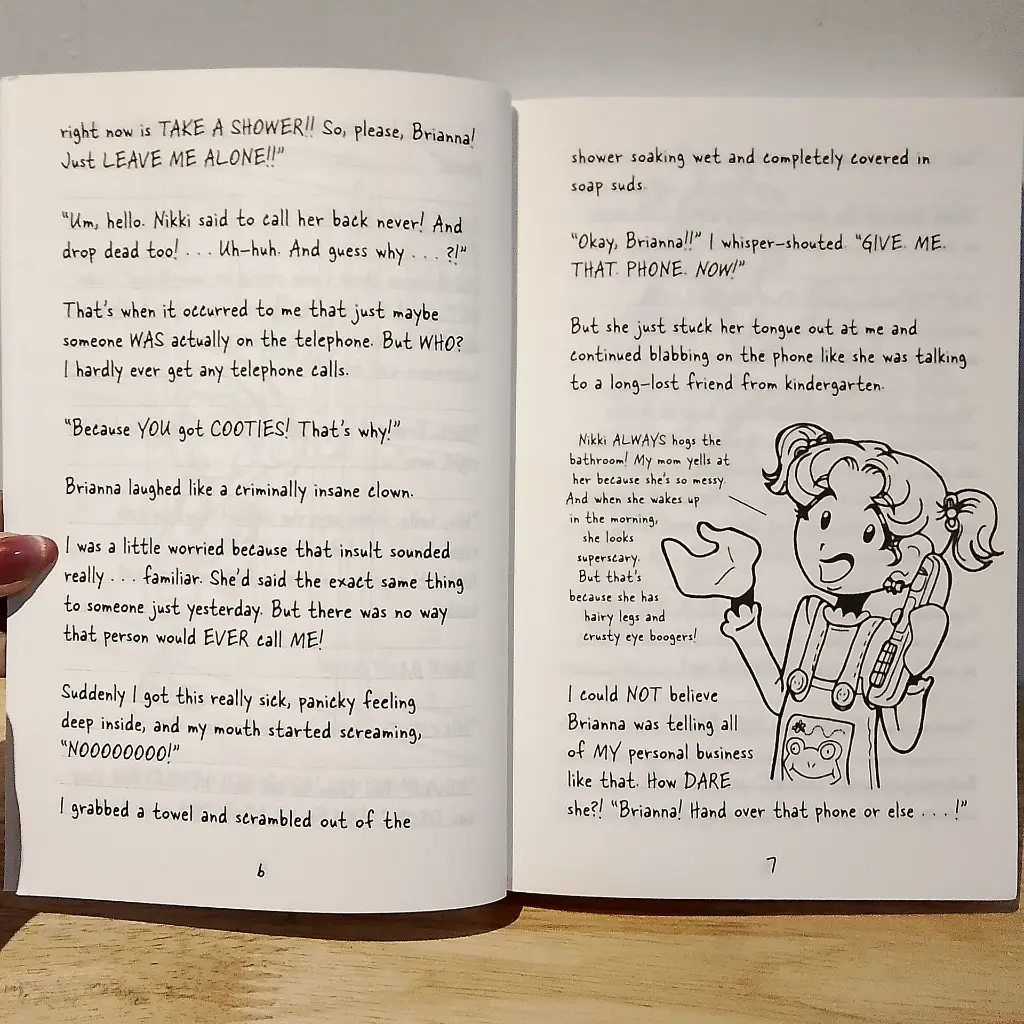 right now is TAKE A SHOWER!! So, please, Brianna!
Just LEAVE ME ALONE!!”
“Um, hello. Nikki said to call her back never! And
drop dead too! . . . Uh-huh. And guess why . . . ?!”
That’s when it occurred to me that just maybe
someone WAS actually on the telephone. But WHO?
I hardly ever get any telephone calls.
“Because YOU got COOTIES! That’s why!”
Brianna laughed like a criminally insane clown.
I was a little worried because that insult sounded
really . . . familiar. She’d said the exact same thing
to someone just yesterday. But there was no way
that person would EVER call ME!
Suddenly I got this really sick, panicky feeling
deep inside, and my mouth started screaming,
“NOOOOOOOO!”
I grabbed a towel and scrambled out of the
6
shower soaking wet and completely covered in
soap suds.
“Okay, Brianna!!” I whisper-shouted. “GIVE. ME.
THAT. PHONE. NOW!”
But she just stuck her tongue out at me and
continued blabbing on the phone like she was talking
to a long-lost friend from kindergarten.
Nikki ALWAYS hogs the
bathroom! My mom yells at
her because she’s so messy.
And when she wakes up
in the morning,
she looks
superscary.
But that’s
because she has
hairy legs and
crusty eye boogers!
I could NOT believe
Brianna was telling all
of MY personal business
like that. How DARE
she?! “Brianna! Hand over that phone or else . . . !”
7